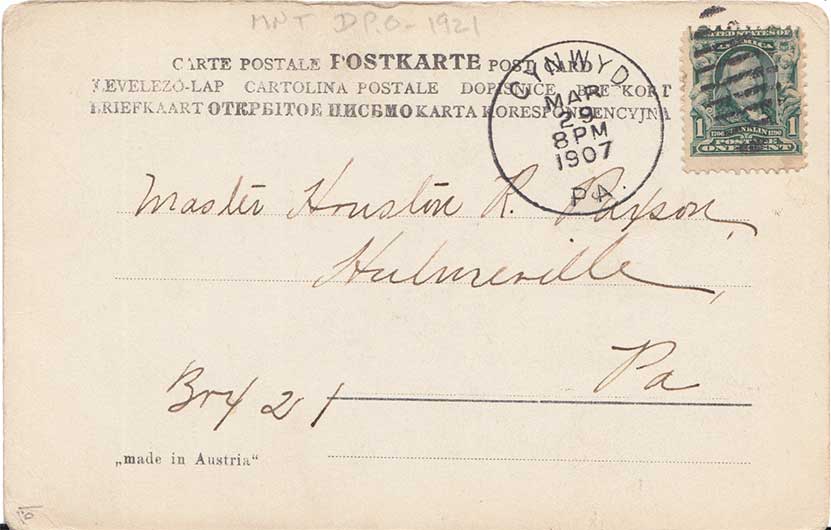 MNT D.P.O - 1921
CARTE POSTALE POSTKARTE POST CARD
LEVELEZŐ-LAP CARTOLINA POSTALE DOPISNICE BREFKORT
BRIEFKAART ОТКРЫТОЕ ПИСЬМО KARTA KORESPONDENCYJNA
CYNWYD
MAR
29
8 PM
1907
PA.
UNITED STATES OF
AMERICA
1 1706 FRANKLIN 1790 1
POSTAGE
ONE CENT
Master Houston R. Paxson,
Hulmeville,
Pa
Box 21
„made in Austria“